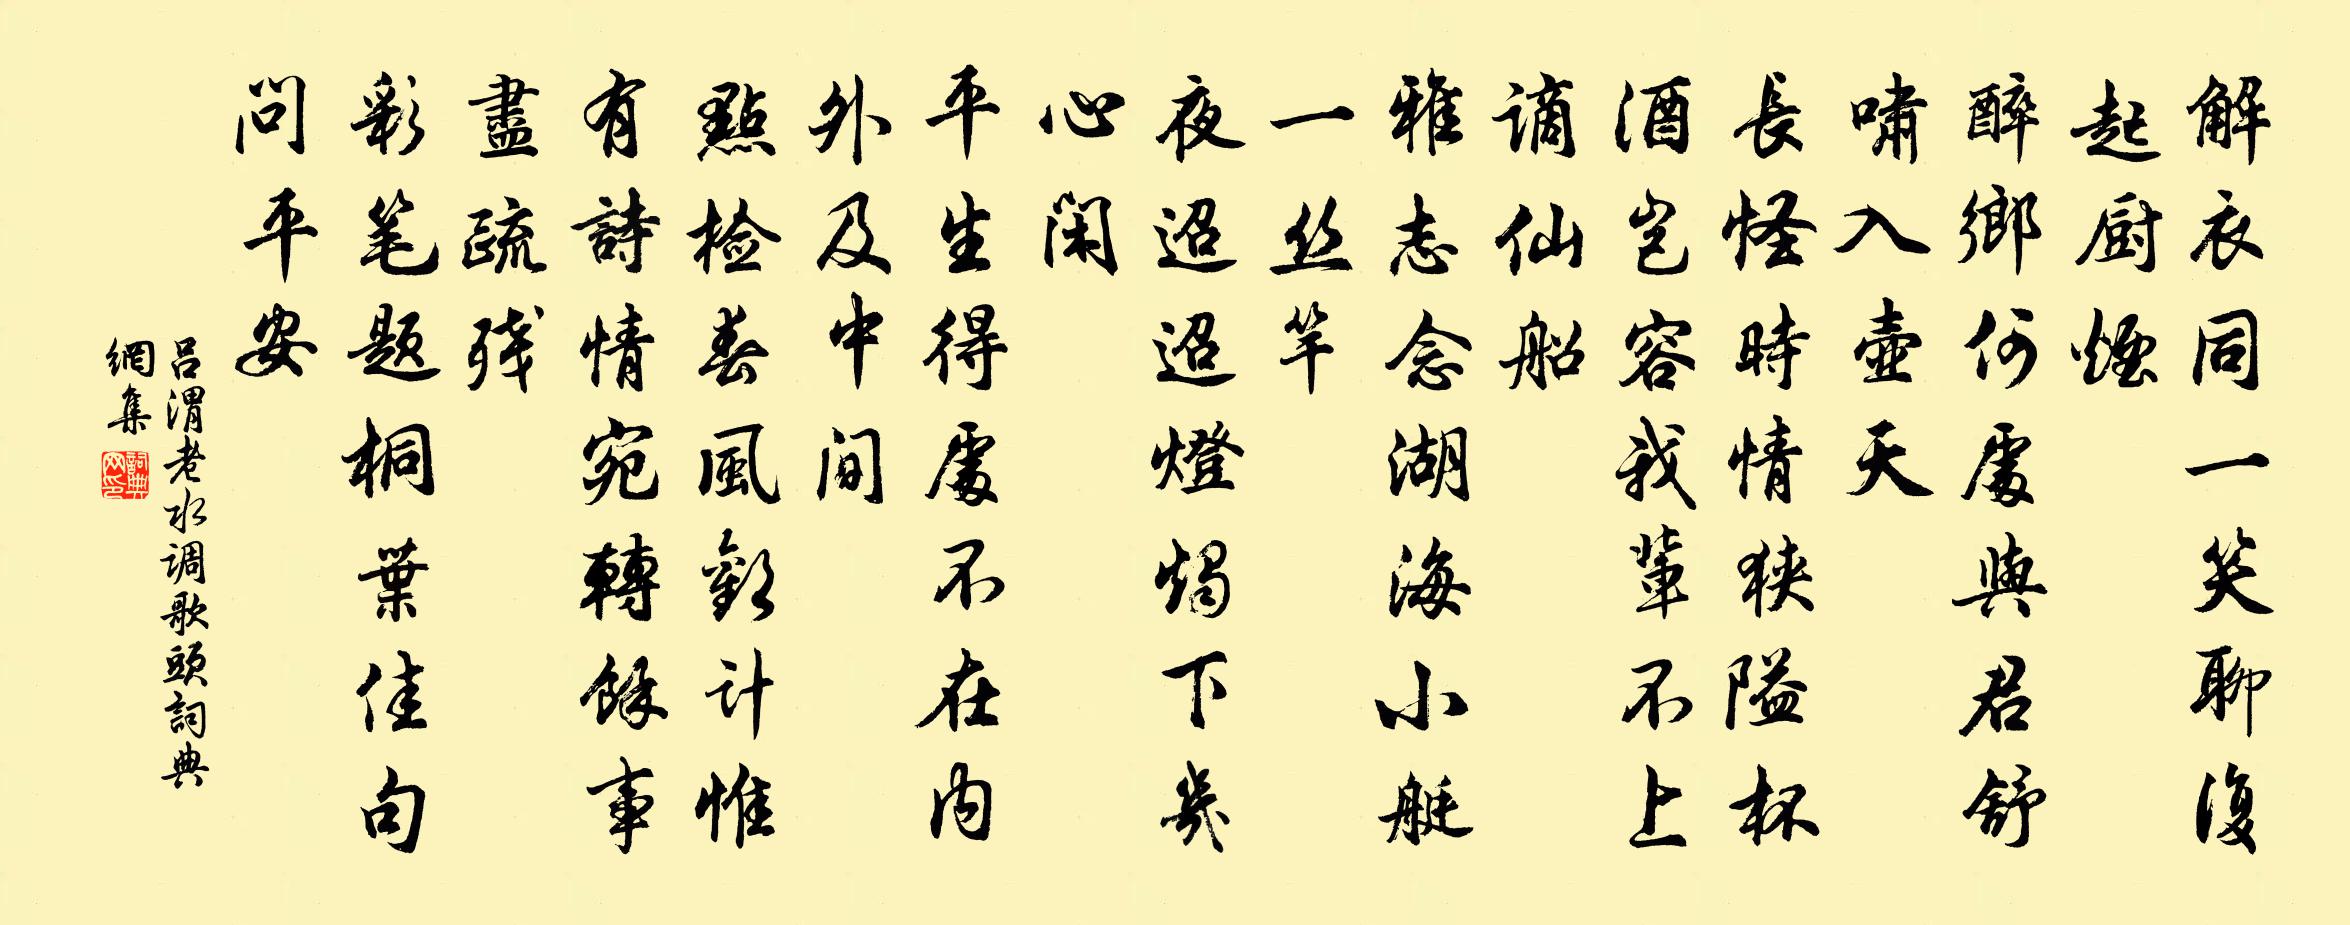 解衣同一笑聊復
起厨煙
醉鄉何處與君舒
嘯入壷天
長怪時情狹隘杯
酒岂容我輩不上
谪仙船
雅志念湖海小艇
一丝竿
夜迢迢燈燭下幾
心闲
平生得處不在内
外及中间
點检春風歡计惟
有詩情宛轉餘事
盡疏残
彩笔题桐葉佳句
问平安
吕渭老水调歌頭詞典
網集
詞典网印